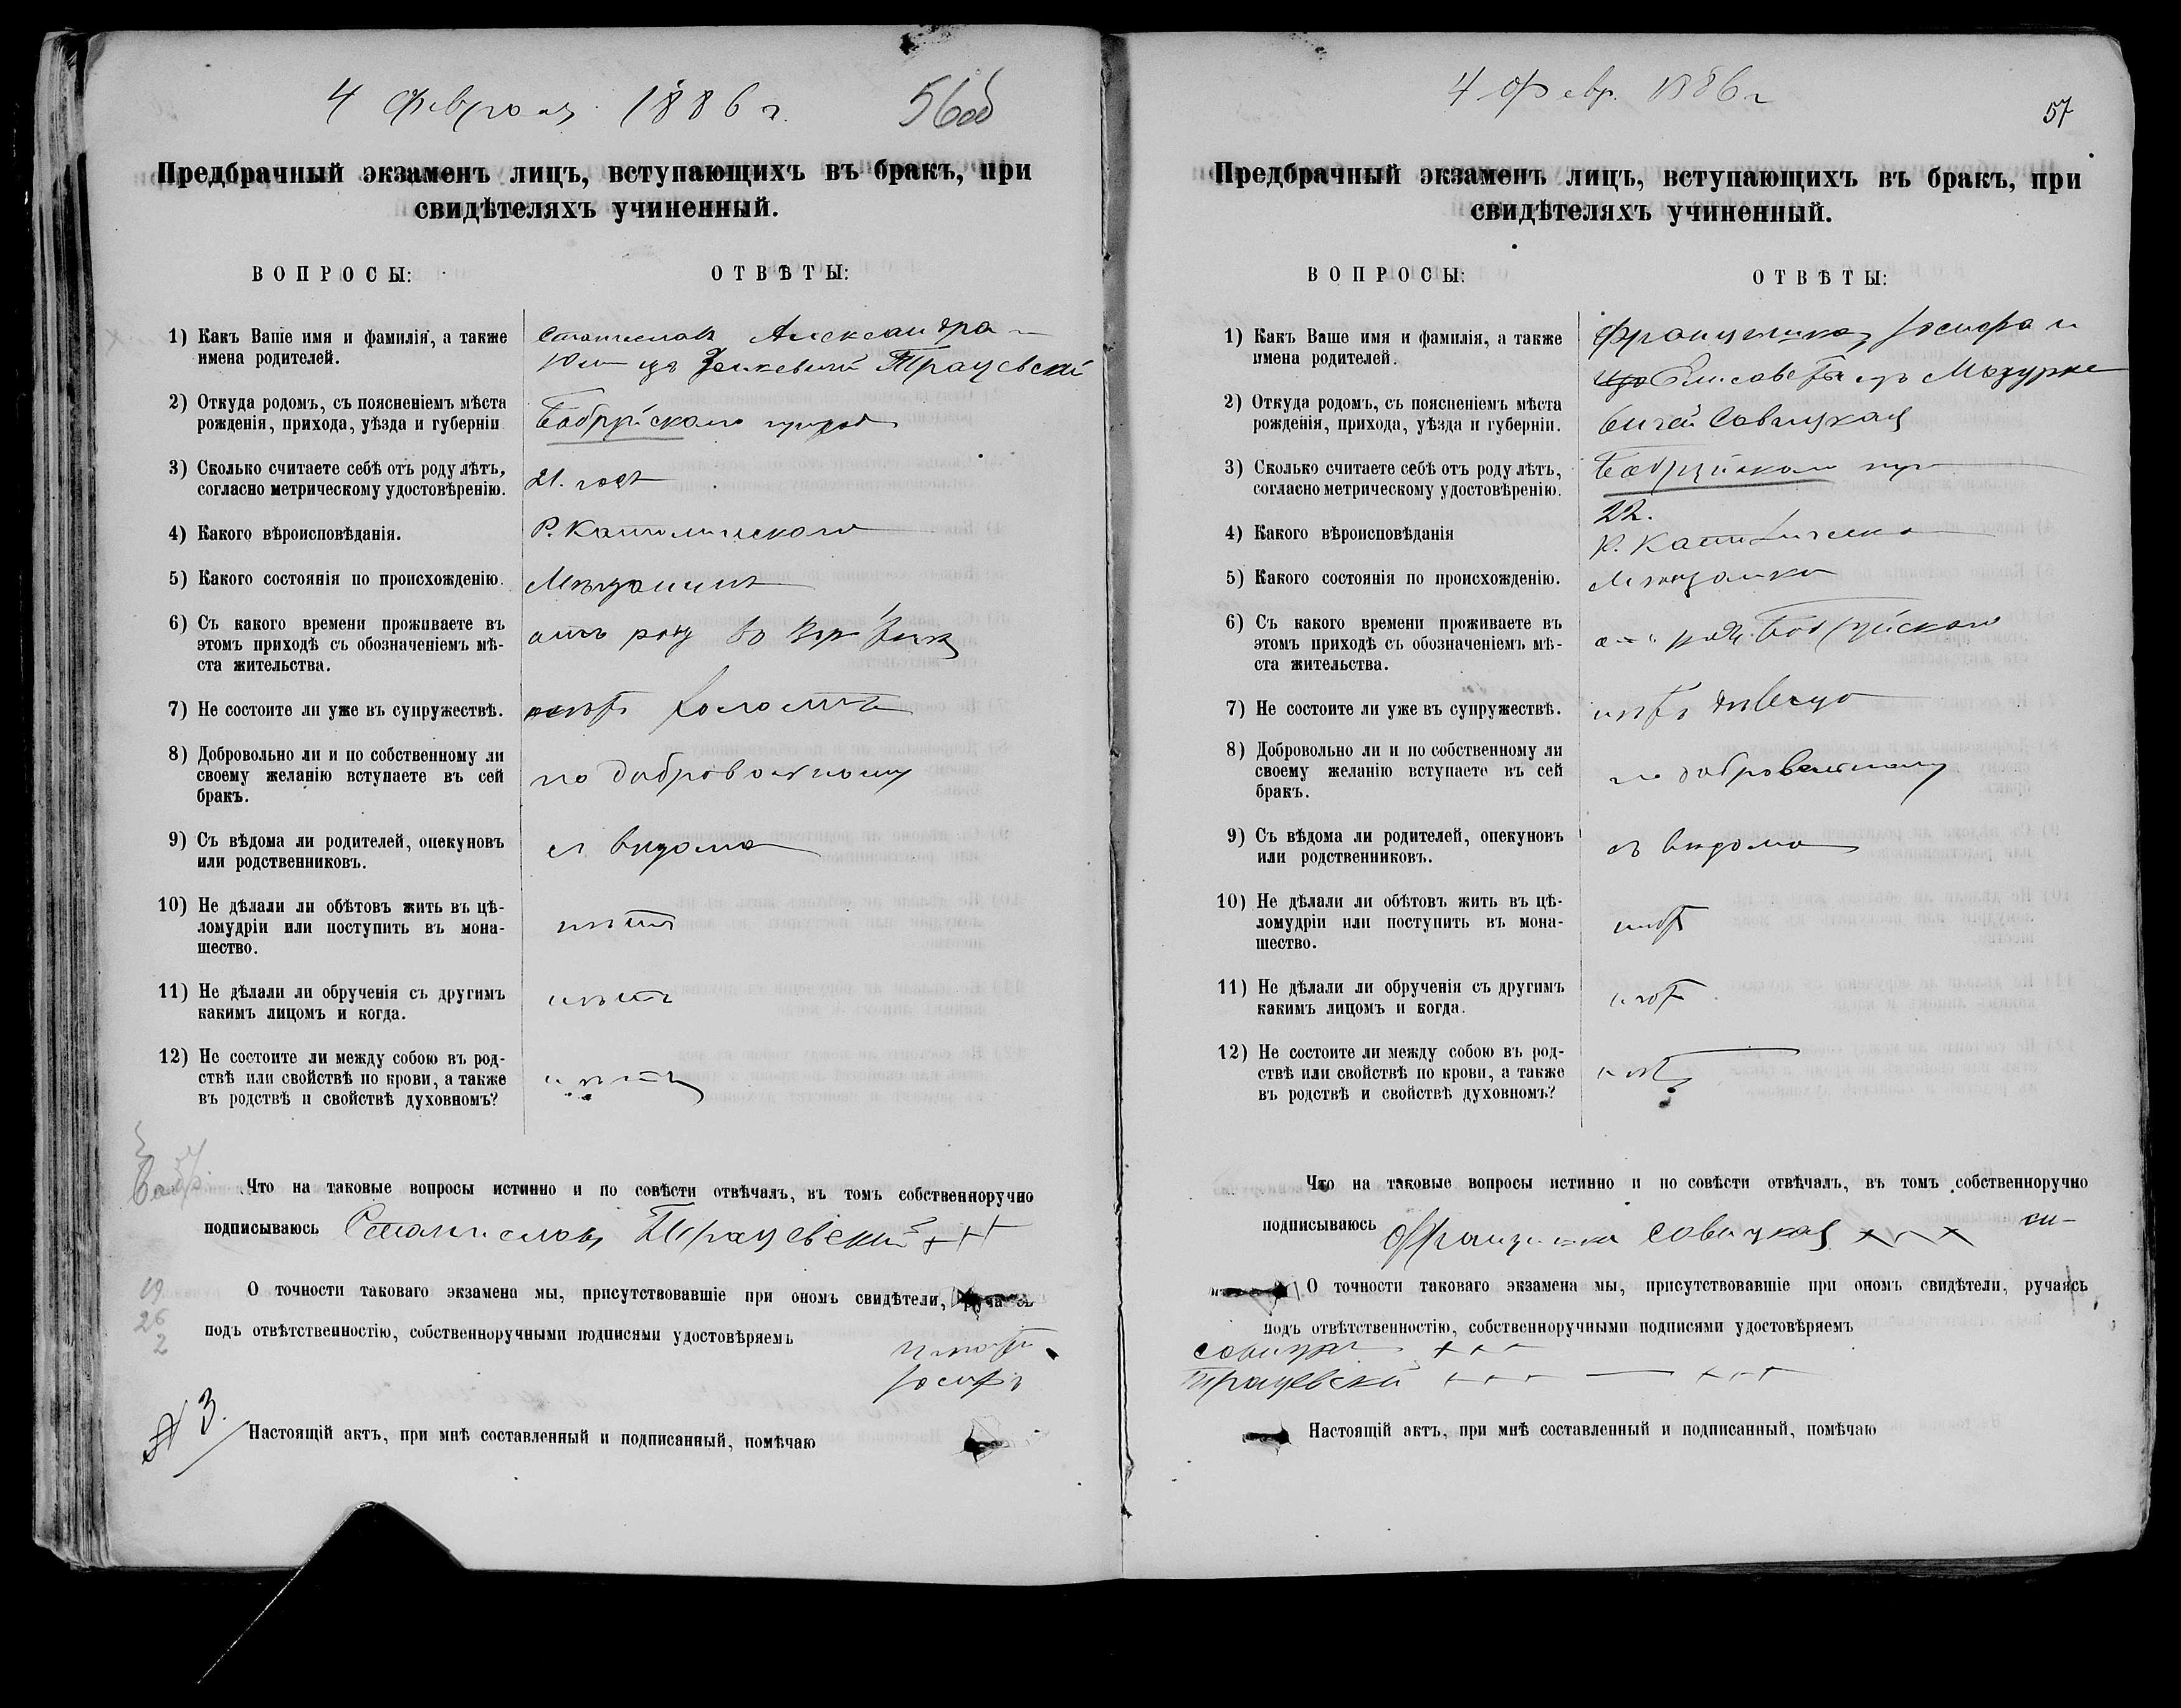 4 Февраля 1886 г. 56об
Предбрачный экзаменъ лицъ, вступающихъ въ бракъ, при
свидѣтеляхъ учиненный.
ВОПРОСЫ: ОТВѢТЫ:
1) Какъ Ваше имя и фамилія, а также
имена родителей.
Станиславъ Александра
Трацевскій
2) Откуда родомъ, съ поясненіемъ мѣста
рожденія, прихода, уѣзда и губерніи
Бобруйскаго прихода
3) Сколько считаете себѣ отъ роду лѣтъ,
согласно метрическому удостовѣренію.
21. годъ
4) Какого вѣроисповѣданія.
Р. Католическаго
5) Какого состоянія по происхожденію.
Мѣщанинъ
6) Съ какого времени проживаете въ
этомъ приходѣ съ обозначеніемъ мѣ-
ста жительства.
отъ роду во
7) Не состоите ли уже въ супружествѣ.
нѣтъ холостъ
8) Добровольно ли и по собственному ли
своему желанію вступаете въ сей
бракъ.
по добровольному
9) Съ вѣдома ли родителей, опекуновъ
или родственниковъ.
съ видома
10) Не дѣлали ли обѣтовъ жить въ цѣ-
ломудріи или поступить въ мона-
шество.
нѣтъ
11) Не дѣлали ли обрученія съ другимъ
какимъ лицомъ и когда.
нѣтъ
12) Не состоите ли между собою въ род-
ствѣ или свойствѣ по крови, а также
въ родствѣ и свойствѣ духовномъ?
нѣтъ
Что на таковые вопросы истинно и по совѣсти отвѣчалъ, въ томъ собственноручно
подписываюсь Станиславъ Трацевскій +++
О точности таковаго экзамена мы, присутствовавшіе при ономъ свидѣтели, ручаясь
подъ отвѣтственностію, собственноручными подписями удостовѣряемъ
Іосифъ
19
26
2
3.
Настоящій актъ, при мнѣ составленный и подписанный, помѣчаю
4 Февр. 1886 г
57
Предбрачный экзаменъ лицъ, вступающихъ въ бракъ, при
свидѣтеляхъ учиненный.
ВОПРОСЫ: ОТВѢТЫ:
1) Какъ Ваше имя и фамилія, а также
имена родителей.
Францишка Іосифа и
Елисаветы изъ Мазурке
вичей Савицкая
2) Откуда родомъ, съ поясненіемъ мѣста
рожденія, прихода, уѣзда и губерніи.
Бобруйскаго пр
3) Сколько считаете себѣ отъ роду лѣтъ,
согласно метрическому удостовѣренію.
22.
4) Какого вѣроисповѣданія
Р. Католическо
5) Какого состоянія по происхожденію.
Мѣщанка
6) Съ какого времени проживаете въ
этомъ приходѣ съ обозначеніемъ мѣ-
ста жительства.
Бобруйскаго
7) Не состоите ли уже въ супружествѣ.
нѣтъ дѣвица
8) Добровольно ли и по собственному ли
своему желанію вступаете въ сей
бракъ.
по добровольному
9) Съ вѣдома ли родителей, опекуновъ
или родственниковъ.
съ видома
10) Не дѣлали ли обѣтовъ жить въ цѣ-
ломудріи или поступить въ мона-
шество.
нѣтъ
11) Не дѣлали ли обрученія съ другимъ
какимъ лицомъ и когда.
нѣтъ
12) Не состоите ли между собою въ род-
ствѣ или свойствѣ по крови, а также
въ родствѣ и свойствѣ духовномъ?
нѣтъ
Что на таковые вопросы истинно и по совѣсти отвѣчалъ, въ томъ собственноручно
подписываюсь Францишка Савицкая +++
О точности таковаго экзамена мы, присутствовавшіе при ономъ свидѣтели, ручаясь
подъ отвѣтственностію, собственноручными подписями удостовѣряемъ
+++
Трацевскій +++ — +++
Настоящій актъ, при мнѣ составленный и подписанный, помѣчаю